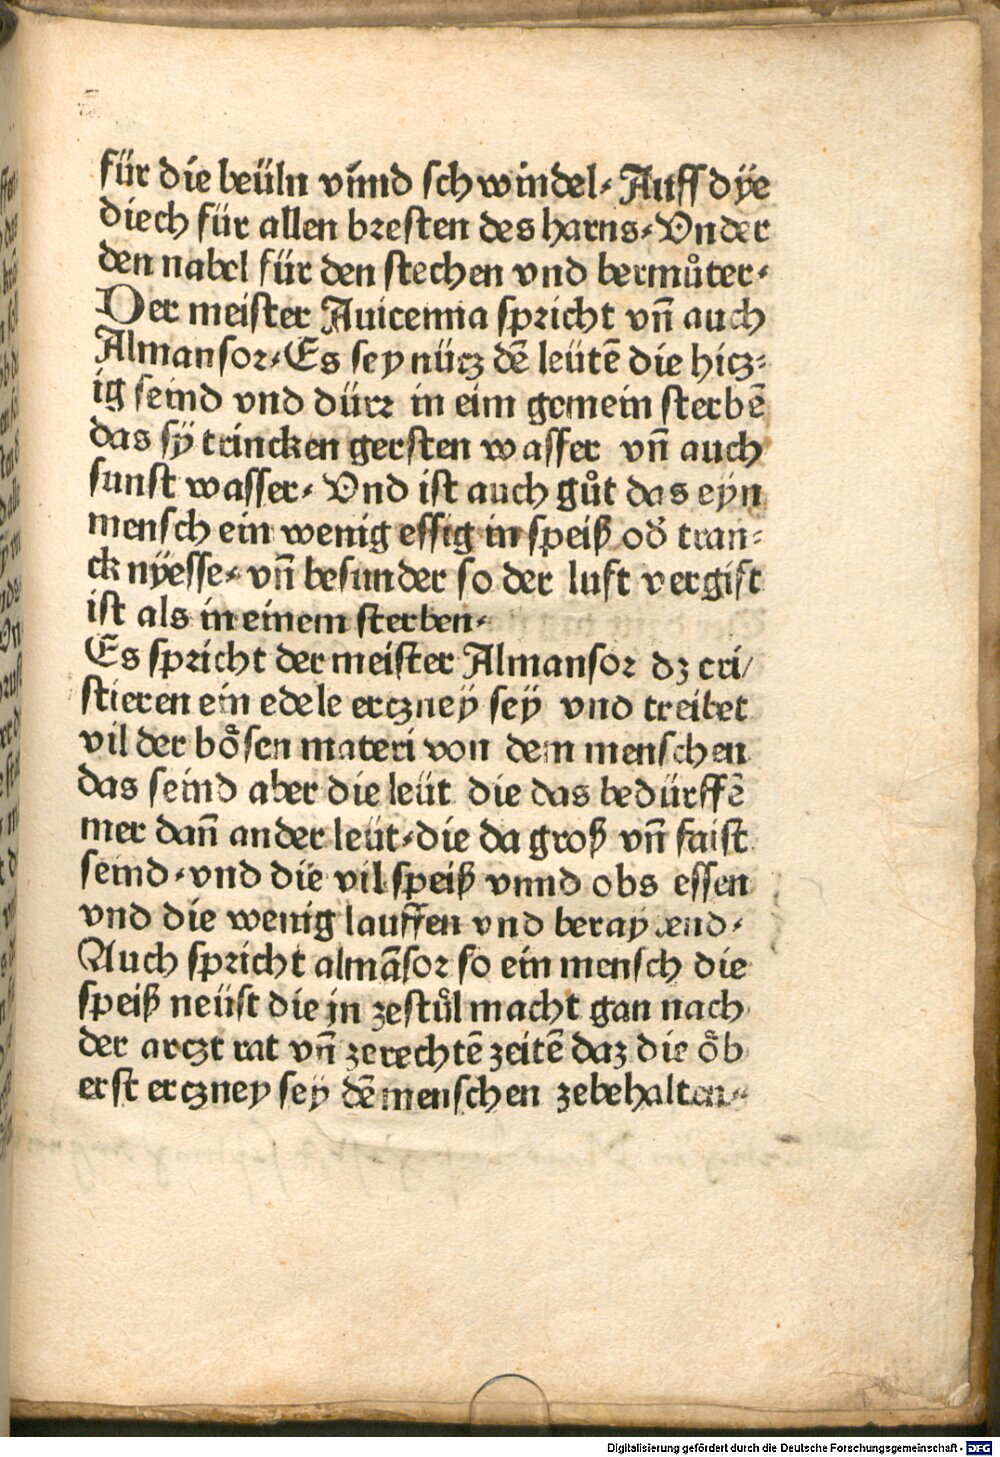 für die beüln vnnd schwindel· Auff dÿe
diech für allen bresten des harns· Vnder
den nabel für den stechen vnd bermůter·
Der meister Auicenna spricht vn̄ auch
Almansor· Es sey nücz dē leütē die hicz⸗
ig seind vnd dürr in eim gemein sterbē
das sÿ trincken gersten wasser vn̄ auch
sunst wasser· Vnd ist auch gůt das eyn
mensch ein wenig essig in speiß od̄ tran⸗
ck nÿesse· vn̄ besunder so der luft vergift
ist als in einem sterben·
Es spricht der meister Almansor dz cri/
stieren ein edele erczneÿ seÿ vnd treibet
vil der bo᷑sen materi von dem menschen
das seind aber die leüt die das bedürffē
mer dan̄ ander leüt· die da groß vn̄ faist
seind· vnd die vil speiß vnnd obs essen
vnd die wenig lauffen vnd
Auch spricht almāsor so ein mensch die
speiß neüst die in zestůl macht gan nach
der arczt rat vn̄ zerechtē zeitē daz die öb
erst erczney seÿ dē menschen zebehalten·
Digitalisierung gefördert durch die Deutsche Forschungsgemeinschaft · DFG